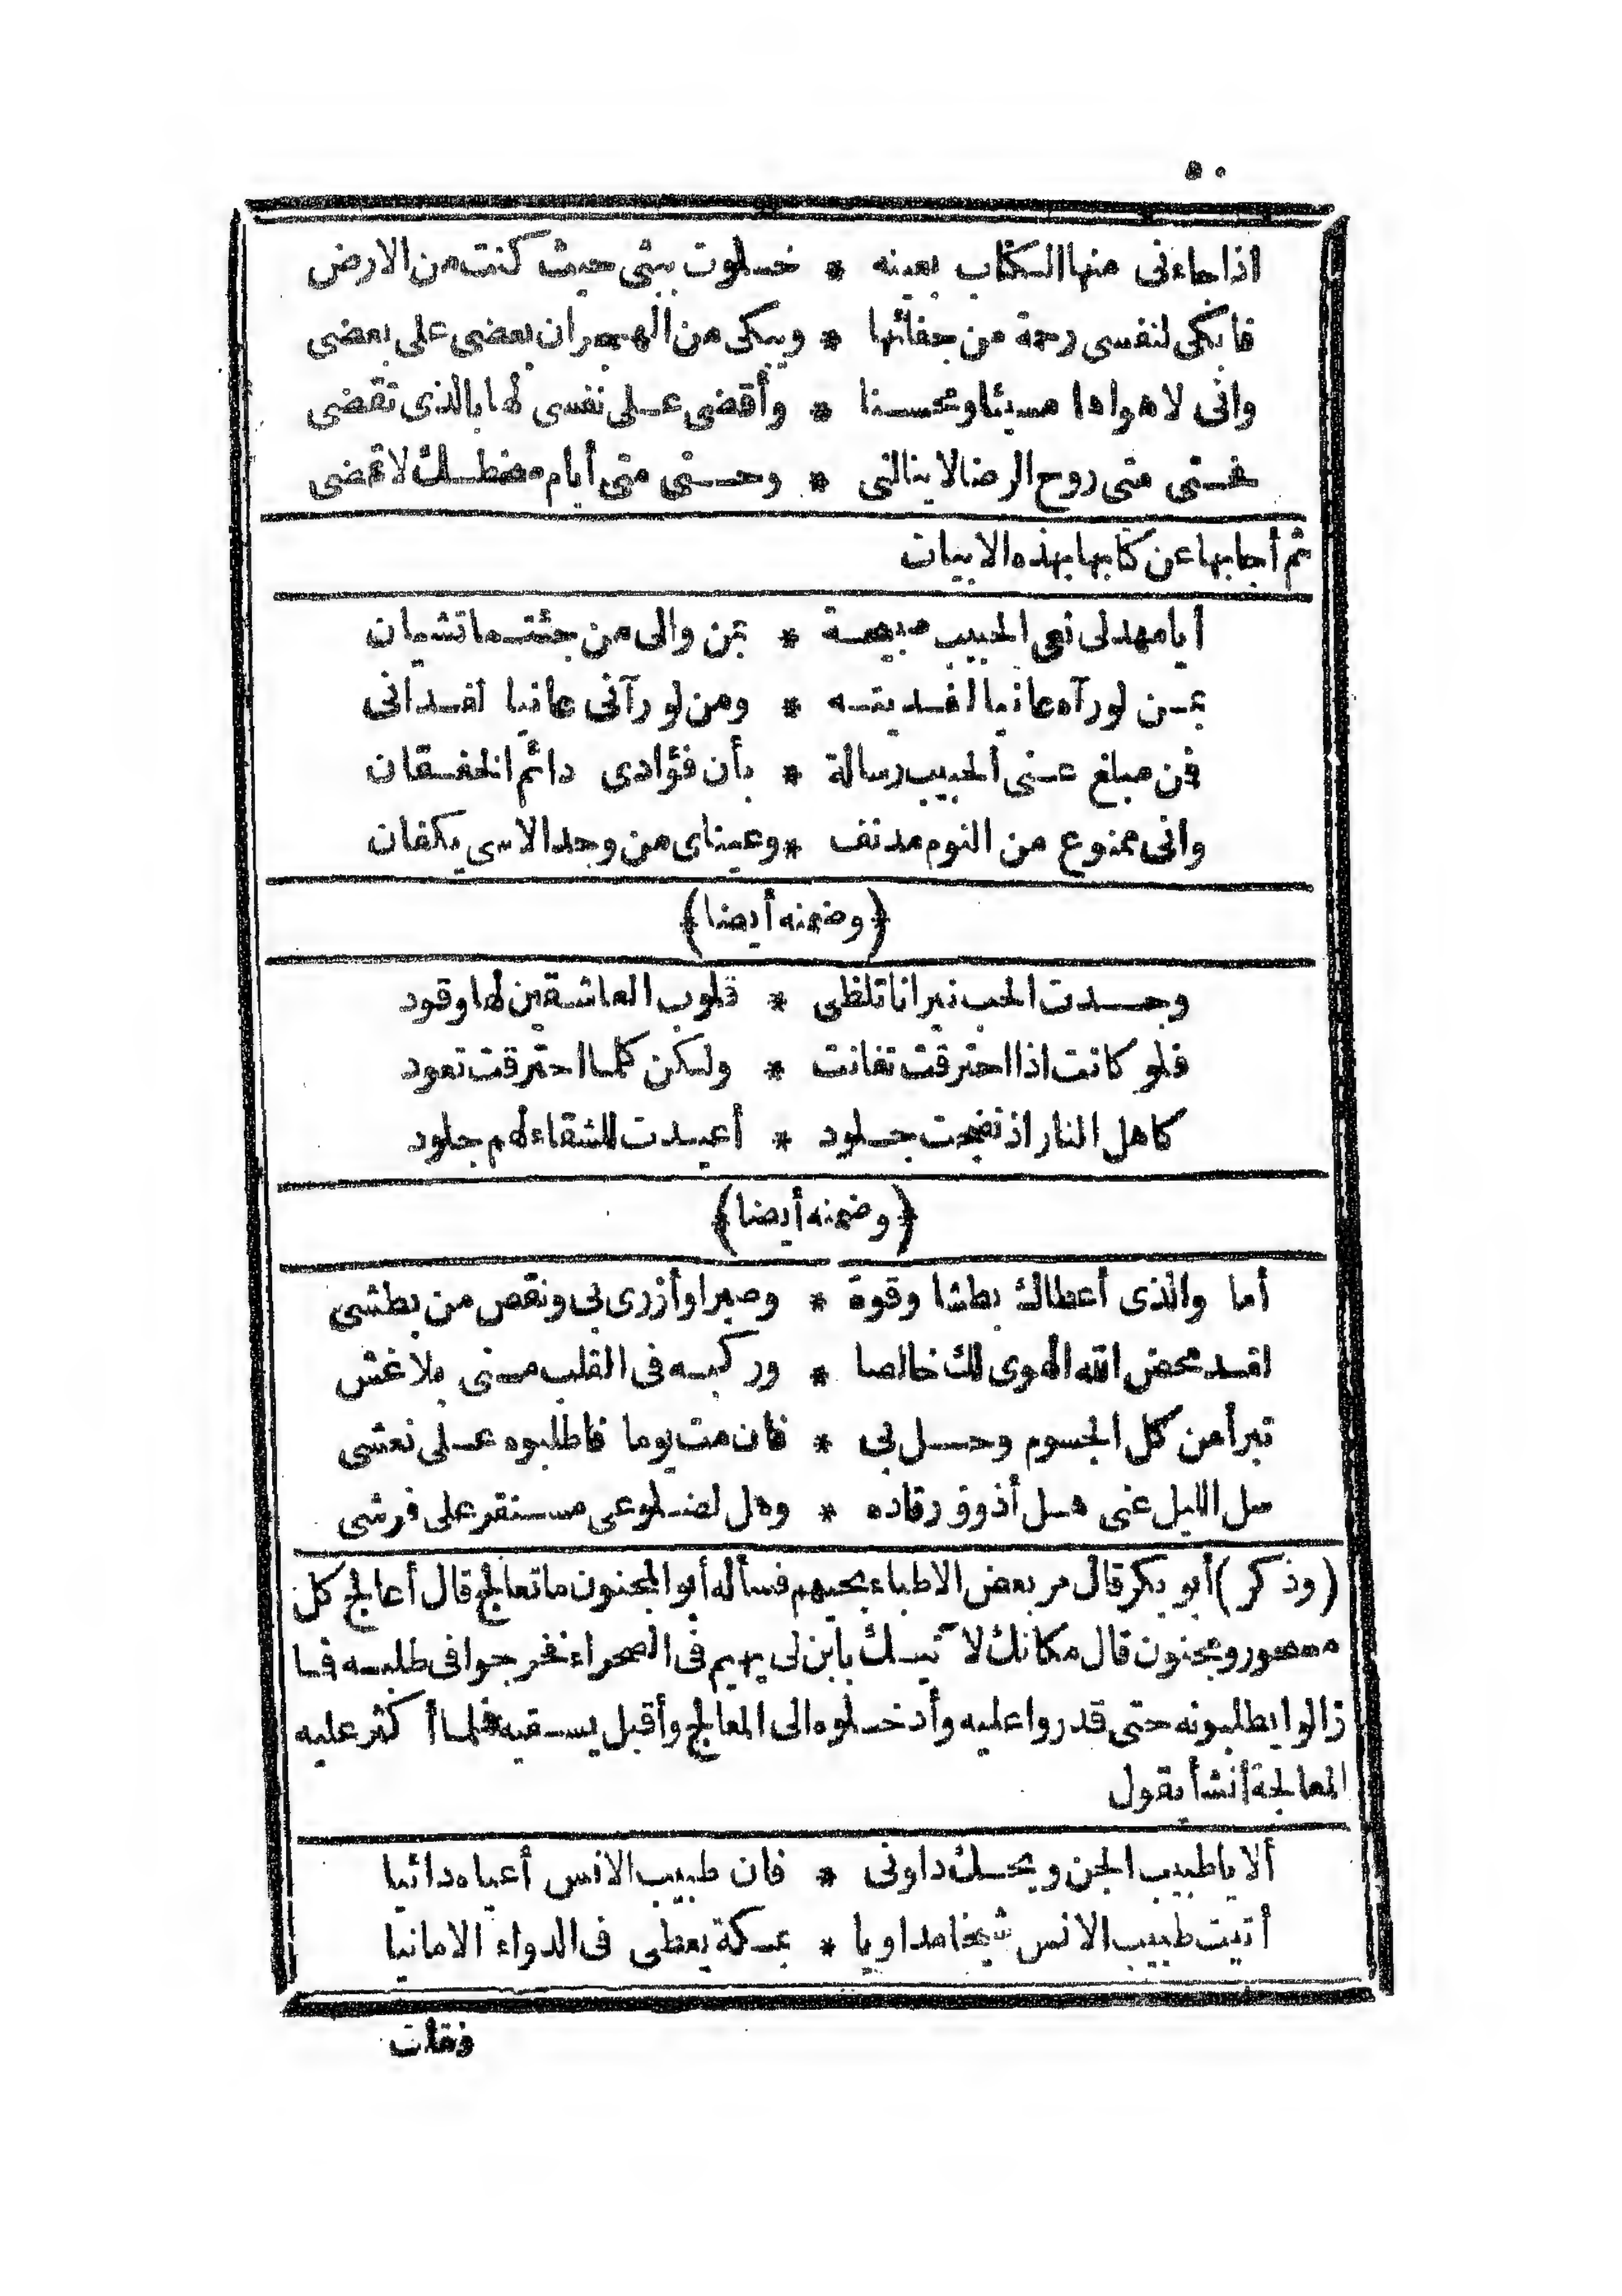 ٥٠
اذا جاءنى منها الكتاب بعينه * خلوت ببثى حيث كنت من الارض
فابكى لنفسى رحمة من جفائها * ويبكى من الهجران بعضى على بعضى
وانى لاهواها مسيئا ومحسنا * وأقضى على نفسى لها بالذى تقضى
فحتى متى روح الرضا لا ينالنى * وحتى متى أيام سخطك لا تمضى
ثم أجابها عن كتابها بهذه الابيات
أيا مهدلى نعى الحبيب صبيحة * بمن والى من جئتما تشيان
بمن لو رآه عانيا لفديته * ومن لو رآنى عانيا لفدانى
فمن مبلغ عنى الحبيب رسالة * بأن فؤادى دائم الخفقان
وانى ممنوع من النوم مدنف * وعيناى من وجد الاسى يكفان
﴿وضمنه أيضا﴾
وجدت الحب نيرانا تلظى * قلوب العاشقين لها وقود
فلو كانت اذا احترقت تفانت * ولكن كلما احترقت تعود
كاهل النار اذ نضجت جلود * أعيدت للشقاء لهم جلود
﴿وضمنه أيضا﴾
أما والذى أعطاك بطشا وقوة * وصبرا وأزرى بى ونقص من بطشى
لقد محض الله الهوى لك خالصا * وركبه فى القلب منى بلا غش
تبرأ من كل الجسوم وحل بى * فان مت يوما فاطلبوه على نعشى
سل الليل عنى هل أذوق رقاده * وهل لضلوعى مستقر على فرشى
(وذكر) أبو بكر قال مر بعض الاطباء بحيهم فسأله أبو المجنون ما تعالج قال أعالج كل
مسحور ومجنون قال مكانك لا تيك بابن لى يهيم فى الصحراء فخرجوا فى طلبه فما
زالوا يطلبونه حتى قدروا عليه وأدخلوه الى المعالج وأقبل يسقيه فلما أكثر عليه
المعالجة أنشأ يقول
ألا يا طبيب الجن ويحك داونى * فان طبيب الانس أعياه دائيا
أتيت طبيب الانس شيخا مداويا * بمكة يعطى فى الدواء الامانيا
فقلت